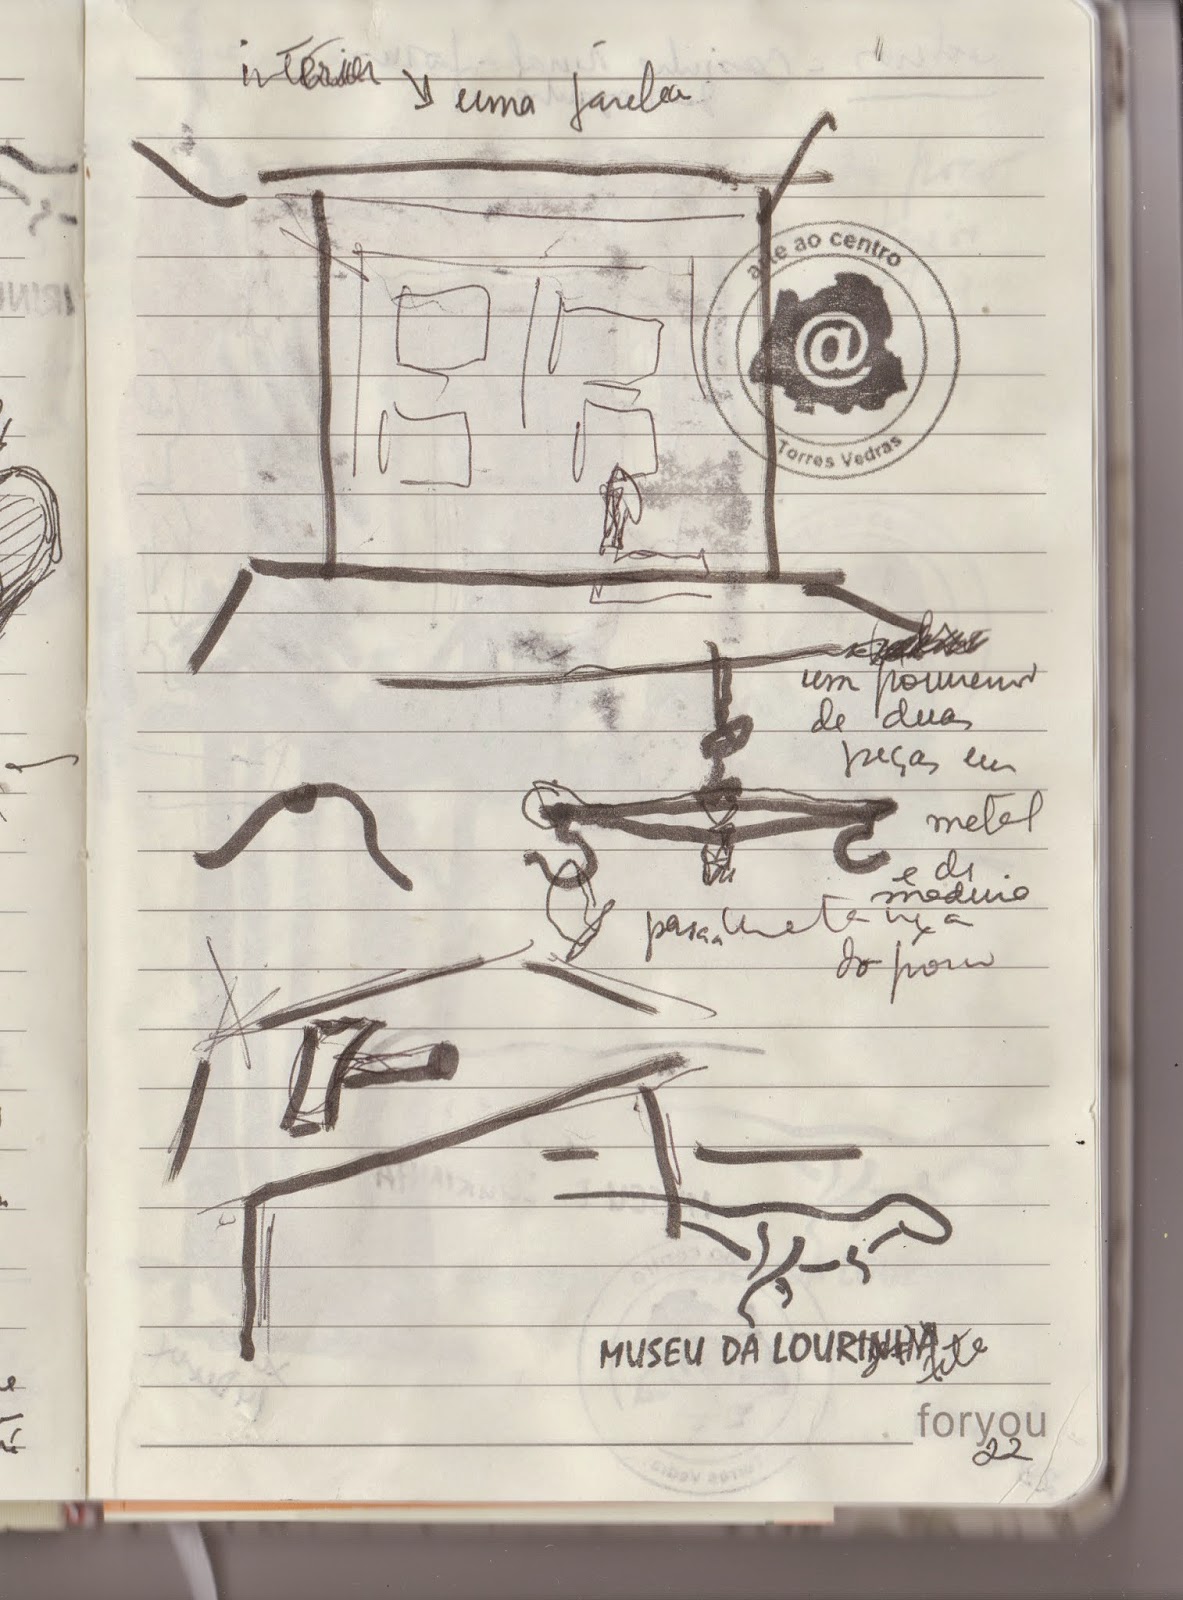 interior
uma janela
arte ao centro
@
Torres Vedras
um pormenor
de duas
peças em
metal
e di
madeira
para matança
do porco
MUSEU DA LOURINHA
foryou
22